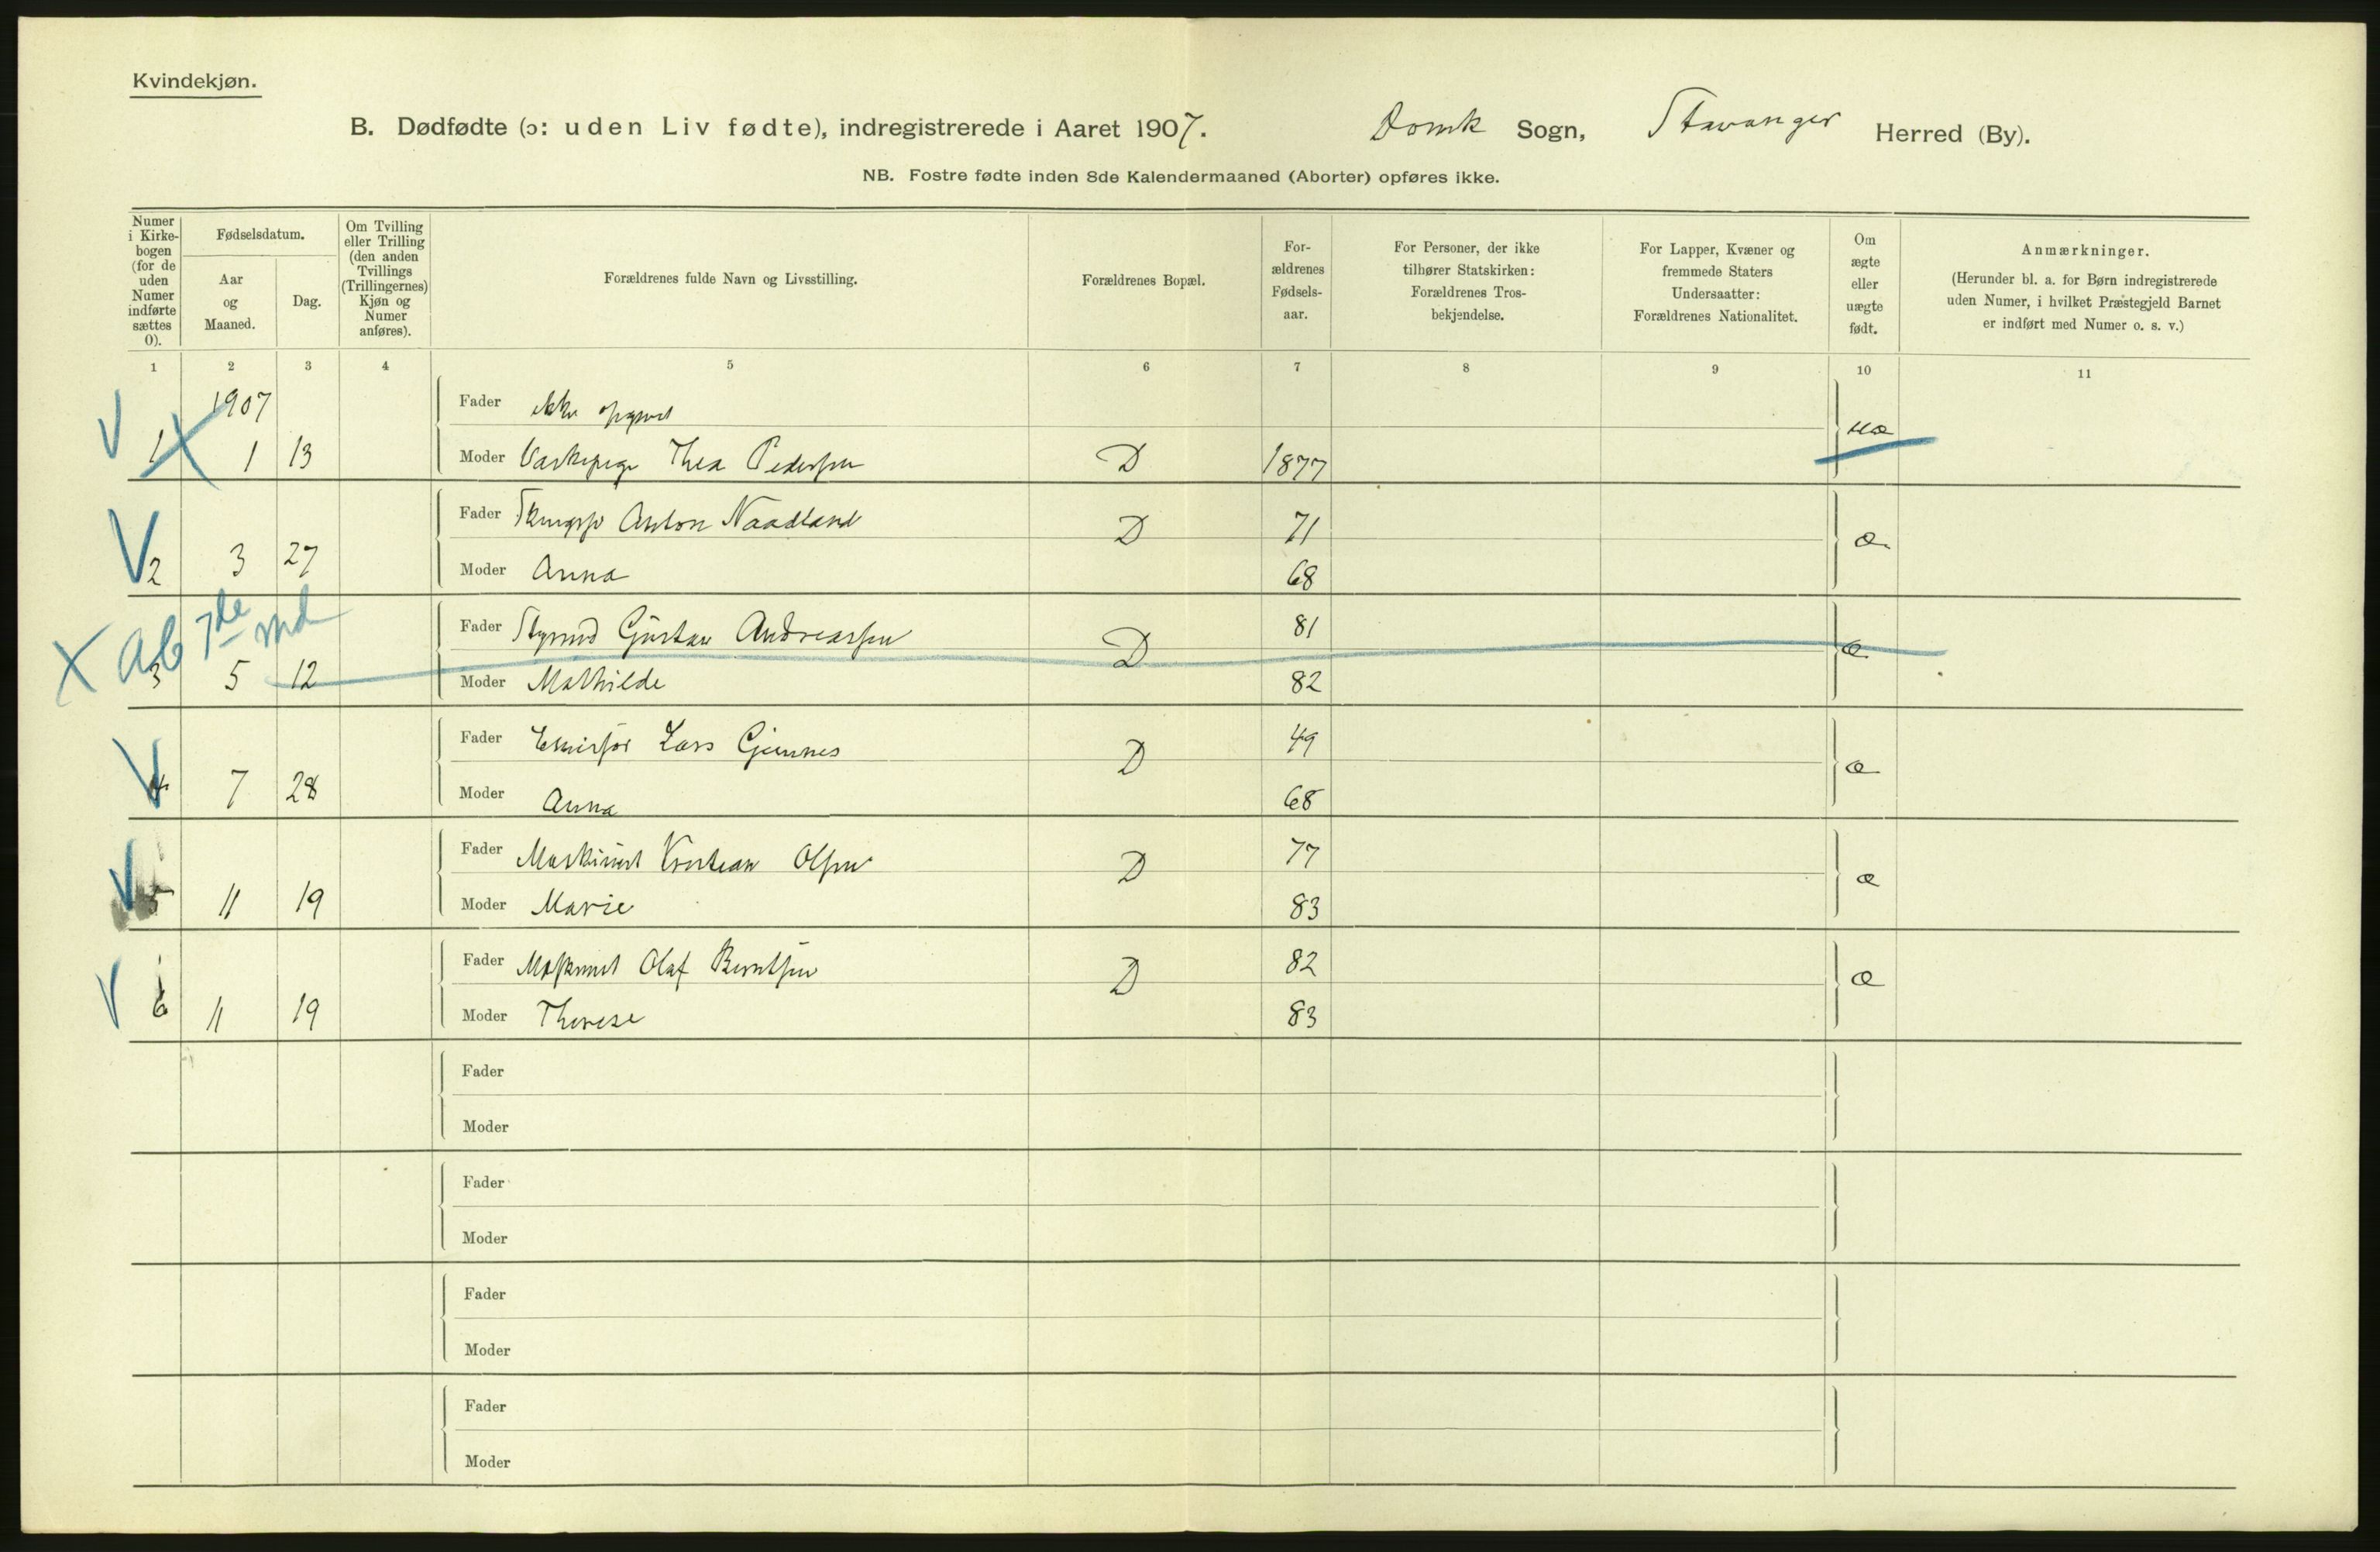 Kvindekjøn.
B. Dødfødte (ɔ: uden Liv fødte), indregistrerede i Aaret 1907. Domk Sogn, Stavanger Herred (By).
NB. Fostre fødte inden 8de Kalendermaaned (Aborter) opføres ikke.
Numer i Kirke-bogen (for de uden Numer indførte sættes 0).
Fødselsdatum.
Aar og Maaned.
Dag.
Om Tvilling eller Trilling (den anden Tvillings (Trillingernes) Kjøn og Numer anføres).
Forældrenes fulde Navn og Livsstilling.
Forældrenes Bopæl.
For-ældrenes Fødsels-aar.
For Personer, der ikke tilhører Statskirken: Forældrenes Tros-bekjendelse.
For Lapper, Kvæner og fremmede Staters Undersaatter: Forældrenes Nationalitet.
Om ægte eller uægte født.
Anmærkninger.
(Herunder bl. a. for Børn indregistrerede uden Numer, i hvilket Præstegjeld Barnet er indført med Numer o. s. v.)
1 2 3 4 5 6 7 8 9 10 11
1907
Fader ikke opgivet
V 1 X 1 13 Moder Thea Pedersen D 1877 uæ
Fader Anton Naadland D 71 æ
V 2 3 27 Moder Anna 68
X Ab 7de md
Fader Gustav Andreassen D 81 æ
3 5 12 Moder Mathilde 82
Fader Lars Gjennes D 49 æ
V 4 7 28 Moder Anna 68
Fader Maskinist Kristian Olsen D 77 æ
V 5 11 19 Moder Marie 83
Fader Olaf Berntsen D 82 æ
V 6 11 19 Moder Therese 83
Fader
Moder
Fader
Moder
Fader
Moder
Fader
Moder